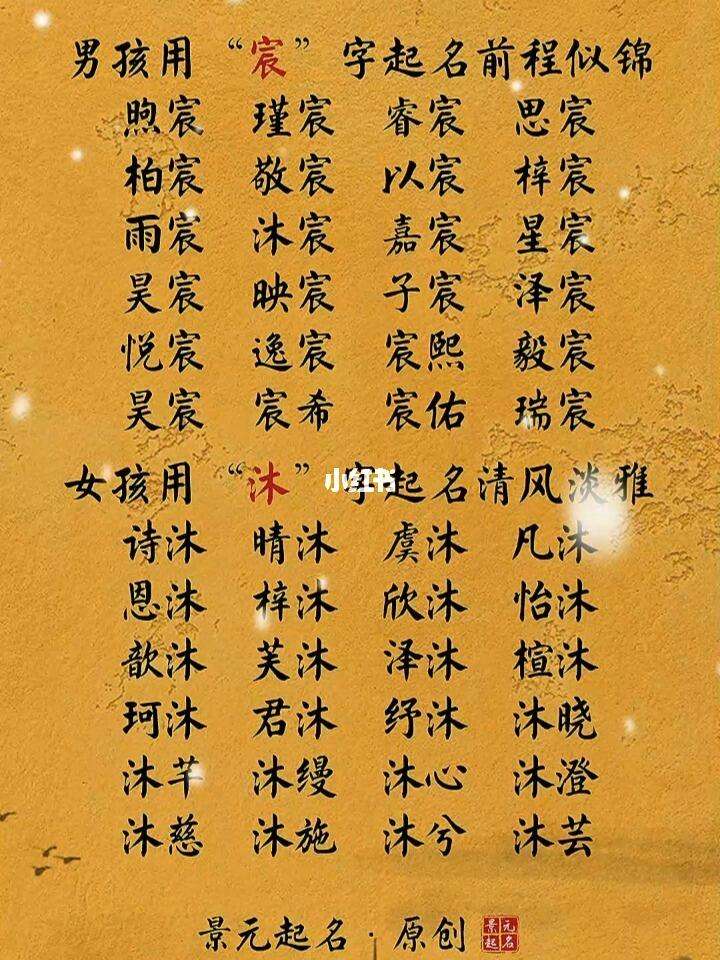 男孩用“宸”字起名前程似锦
煦宸 瑾宸 睿宸 思宸
柏宸 敬宸 以宸 梓宸
雨宸 沐宸 嘉宸 星宸
昊宸 映宸 子宸 泽宸
悦宸 逸宸 宸熙 毅宸
昊宸 宸希 宸佑 瑞宸
女孩用“沐”字起名清风淡雅
小红书
诗沐 晴沐 虞沐 凡沐
恩沐 梓沐 欣沐 怡沐
歆沐 芙沐 泽沐 楦沐
珂沐 君沐 纾沐 沐晓
沐芊 沐缦 沐心 沐澄
沐慈 沐施 沐兮 沐芸
景元起名·原创
景元起名